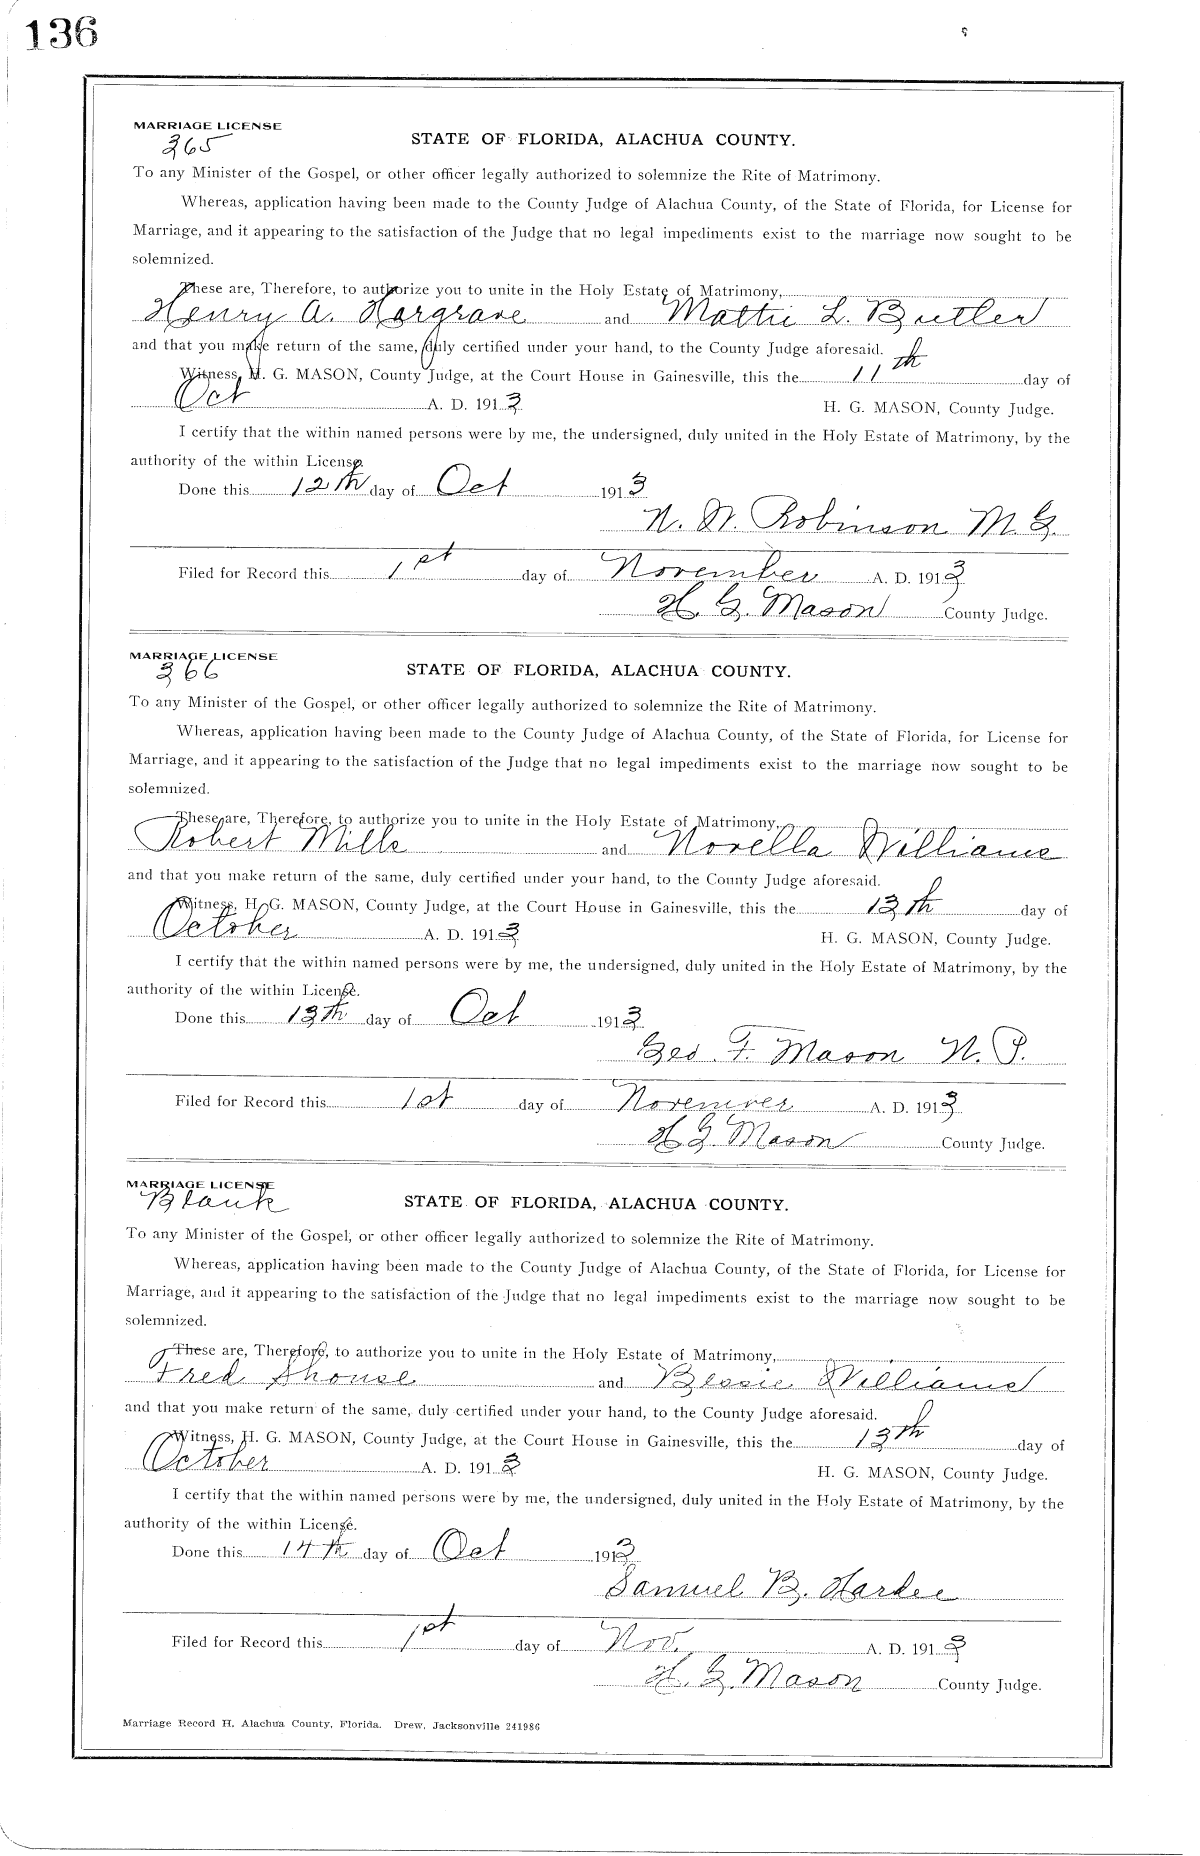 136
MARRIAGE LICENSE
365
STATE OF FLORIDA, ALACHUA COUNTY.
To any Minister of the Gospel, or other officer legally authorized to solemnize the Rite of Matrimony.
Whereas, application having been made to the County Judge of Alachua County, of the State of Florida, for License for
Marriage, and it appearing to the satisfaction of the Judge that no legal impediments exist to the marriage now sought to be
solemnized.
These are, Therefore, to authorize you to unite in the Holy Estate of Matrimony,
Henry A. Hargrave and Mattie L. Butler
and that you make return of the same, duly certified under your hand, to the County Judge aforesaid.
Witness, H. G. MASON, County Judge, at the Court House in Gainesville, this the 11th day of
Oct A. D. 1913 H. G. MASON, County Judge.
I certify that the within named persons were by me, the undersigned, duly united in the Holy Estate of Matrimony, by the
authority of the within License.
Done this 12th day of Oct 1913
N. W. Robinson M. G.
Filed for Record this 1st day of November A. D. 1913
H. G. Mason County Judge.
MARRIAGE LICENSE
366
STATE OF FLORIDA, ALACHUA COUNTY.
To any Minister of the Gospel, or other officer legally authorized to solemnize the Rite of Matrimony.
Whereas, application having been made to the County Judge of Alachua County, of the State of Florida, for License for
Marriage, and it appearing to the satisfaction of the Judge that no legal impediments exist to the marriage now sought to be
solemnized.
These are, Therefore, to authorize you to unite in the Holy Estate of Matrimony,
Robert Mills and Novella Williams
and that you make return of the same, duly certified under your hand, to the County Judge aforesaid.
Witness, H. G. MASON, County Judge, at the Court House in Gainesville, this the 13th day of
October A. D. 1913 H. G. MASON, County Judge.
I certify that the within named persons were by me, the undersigned, duly united in the Holy Estate of Matrimony, by the
authority of the within License.
Done this 13th day of Oct 1913
Geo. F. Mason N. P.
Filed for Record this 1st day of Novemver A. D. 1913
H G. Mason County Judge.
MARRIAGE LICENSE
Blank
STATE OF FLORIDA, ALACHUA COUNTY.
To any Minister of the Gospel, or other officer legally authorized to solemnize the Rite of Matrimony.
Whereas, application having been made to the County Judge of Alachua County, of the State of Florida, for License for
Marriage, and it appearing to the satisfaction of the Judge that no legal impediments exist to the marriage now sought to be
solemnized.
These are, Therefore, to authorize you to unite in the Holy Estate of Matrimony,
Fred Shouse and Bessie Williams
and that you make return of the same, duly certified under your hand, to the County Judge aforesaid.
Witness, H. G. MASON, County Judge, at the Court House in Gainesville, this the 13th day of
October A. D. 1913 H. G. MASON, County Judge.
I certify that the within named persons were by me, the undersigned, duly united in the Holy Estate of Matrimony, by the
authority of the within License.
Done this 14th day of Oct 1913
Samuel B. Hardee
Filed for Record this 1st day of Nov. A. D. 1913
H. G. Mason County Judge.
Marriage Record H, Alachua County, Florida. Drew, Jacksonville 241986